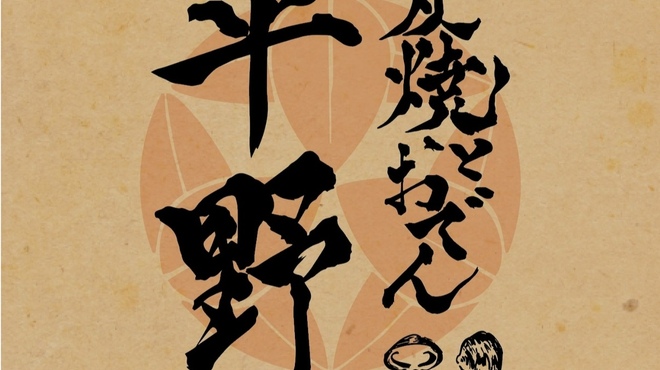 炭焼とおでん
平野